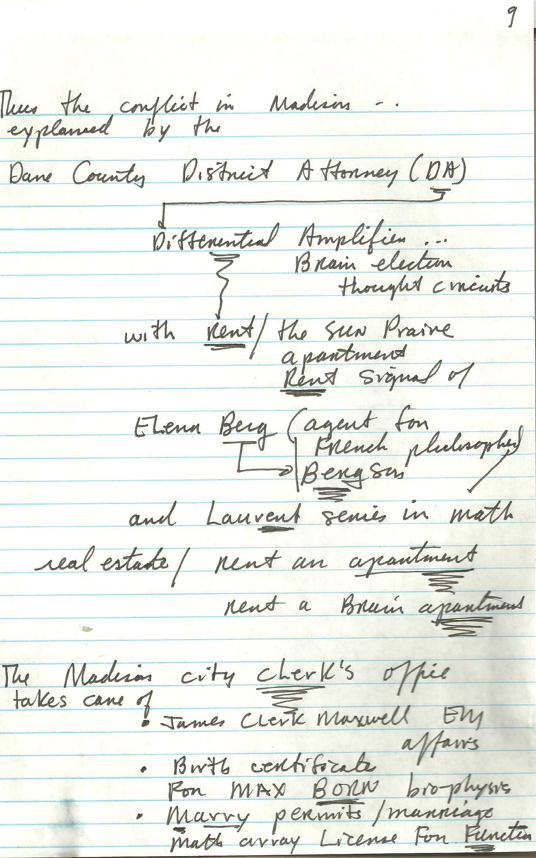 9
Thus the conflict in Madison - ..
explained by the
Dane County District Attorney (DA)
Differential Amplifier ...
Brain electron
thought circuits
with Rent / the SUN Prairie
apartment
Rent signal of
Elena Berg (agent for
French philosopher)
Bergson
and Laurent series in math
real estate / rent an apartment
rent a Brain apartment
The Madison city Clerk's office
takes care of
• James Clerk Maxwell EM
affairs
• Birth certificate
For MAX BORN bio-physics
• Marry permits / marriage
math array License For Function